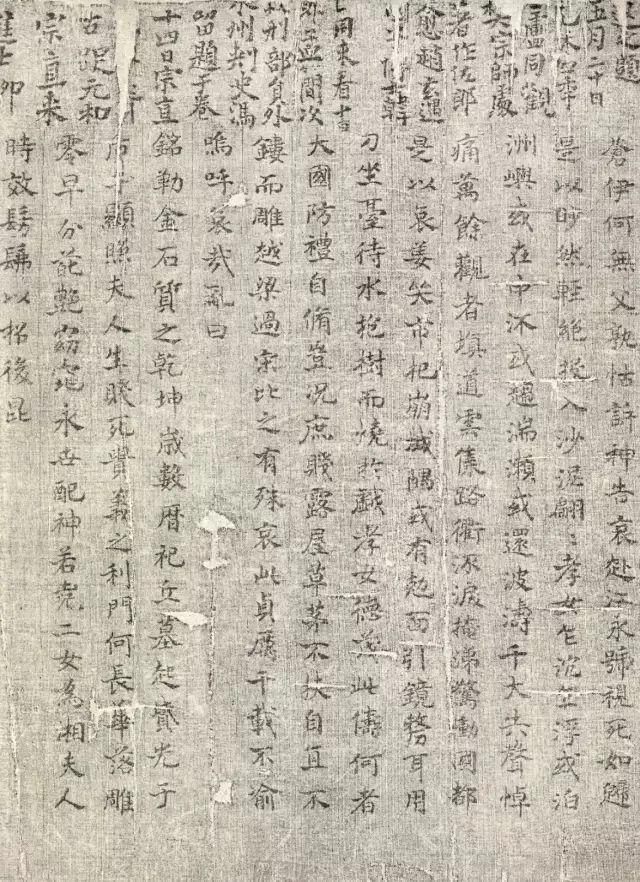 題
五月二十日
盧同觀
樊宗師處
著作佐郎
愈趙玄遇
韓
同来看
間次
刑部員外
永州刺史馮
留題于卷
十四日宗直
元和
宗直来
進士
蒼伊何無父孰怙訴神告哀赴江永號視死如歸
是以眇然輕絕投入沙泥翩〻孝女乍沉乍浮或泊
洲嶼或在中流或趨湍瀨或還波濤千夫共聲悼
痛萬餘觀者填道雲集路衢流淚掩涕驚動國都
是以哀姜哭市杞崩城隅或有剋面引鏡剺耳用
刀坐臺待水抱樹而燒於戲孝女德茂此儔何者
大國防禮自脩豈況庶賤露屋草茅不扶自直不
鏤而雕越梁過宋比之有殊哀此貞厲千載不渝
嗚呼哀哉亂曰
銘勒金石質之乾坤歲數曆祀丘墓起墳光于
后土顯照夫人生賤死貴義之利門何長華落雕
零早分葩艷窈窕永世配神若堯二女為湘夫人
時效髣髴以招後昆